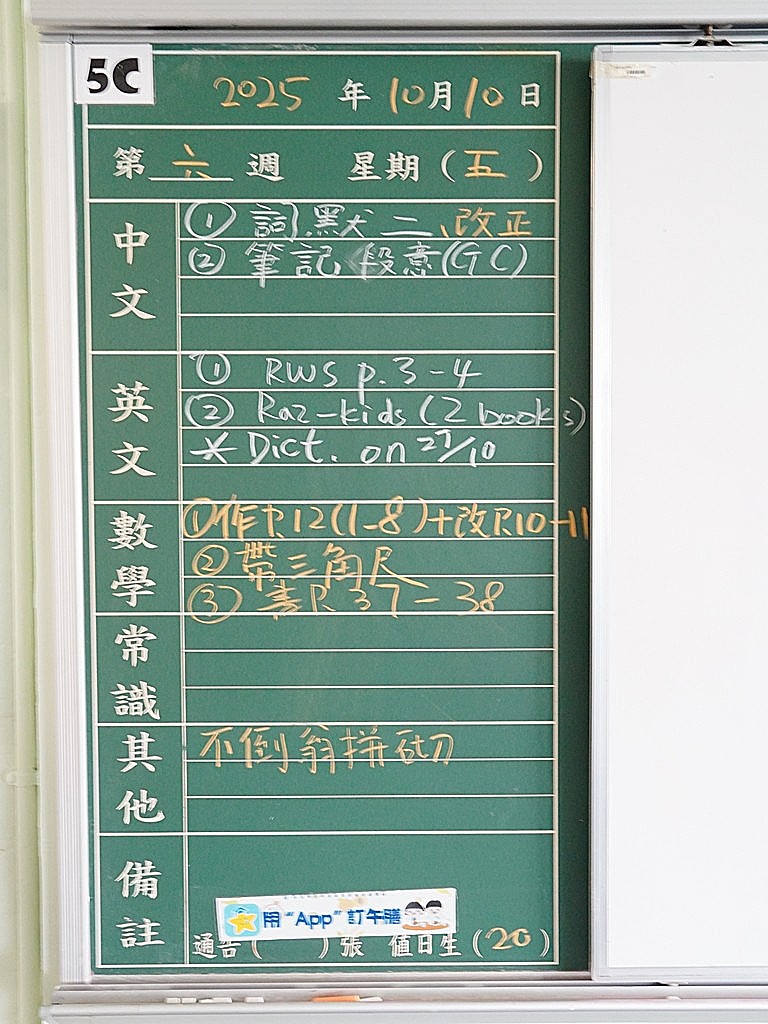 5C
2025 年 10 月 10 日
第 六 週 星期 ( 五 )
中文
① 詞默二、改正
② 筆記 段意(GC)
英文
① RWS p.3-4
② Raz-kids (2 books)
* Dict. on 27/10
數學
①作P.12(1-8)+改P.10-11
② 帶三角尺
③ 書P.37-38
常識
其他
不倒翁拼砌
備註
用“App”訂午膳
通告( )張 值日生(20)